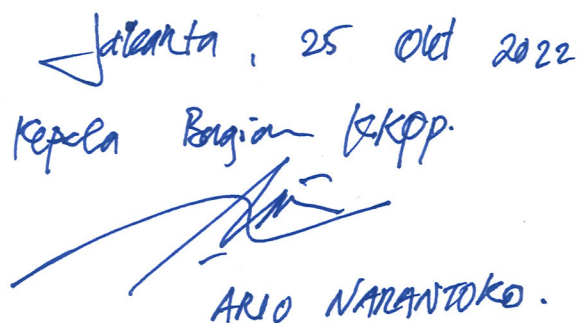 Jakarta, 25 Okt 2022
Kepala Bagian KKOP.
ARIO NARANTOKO.